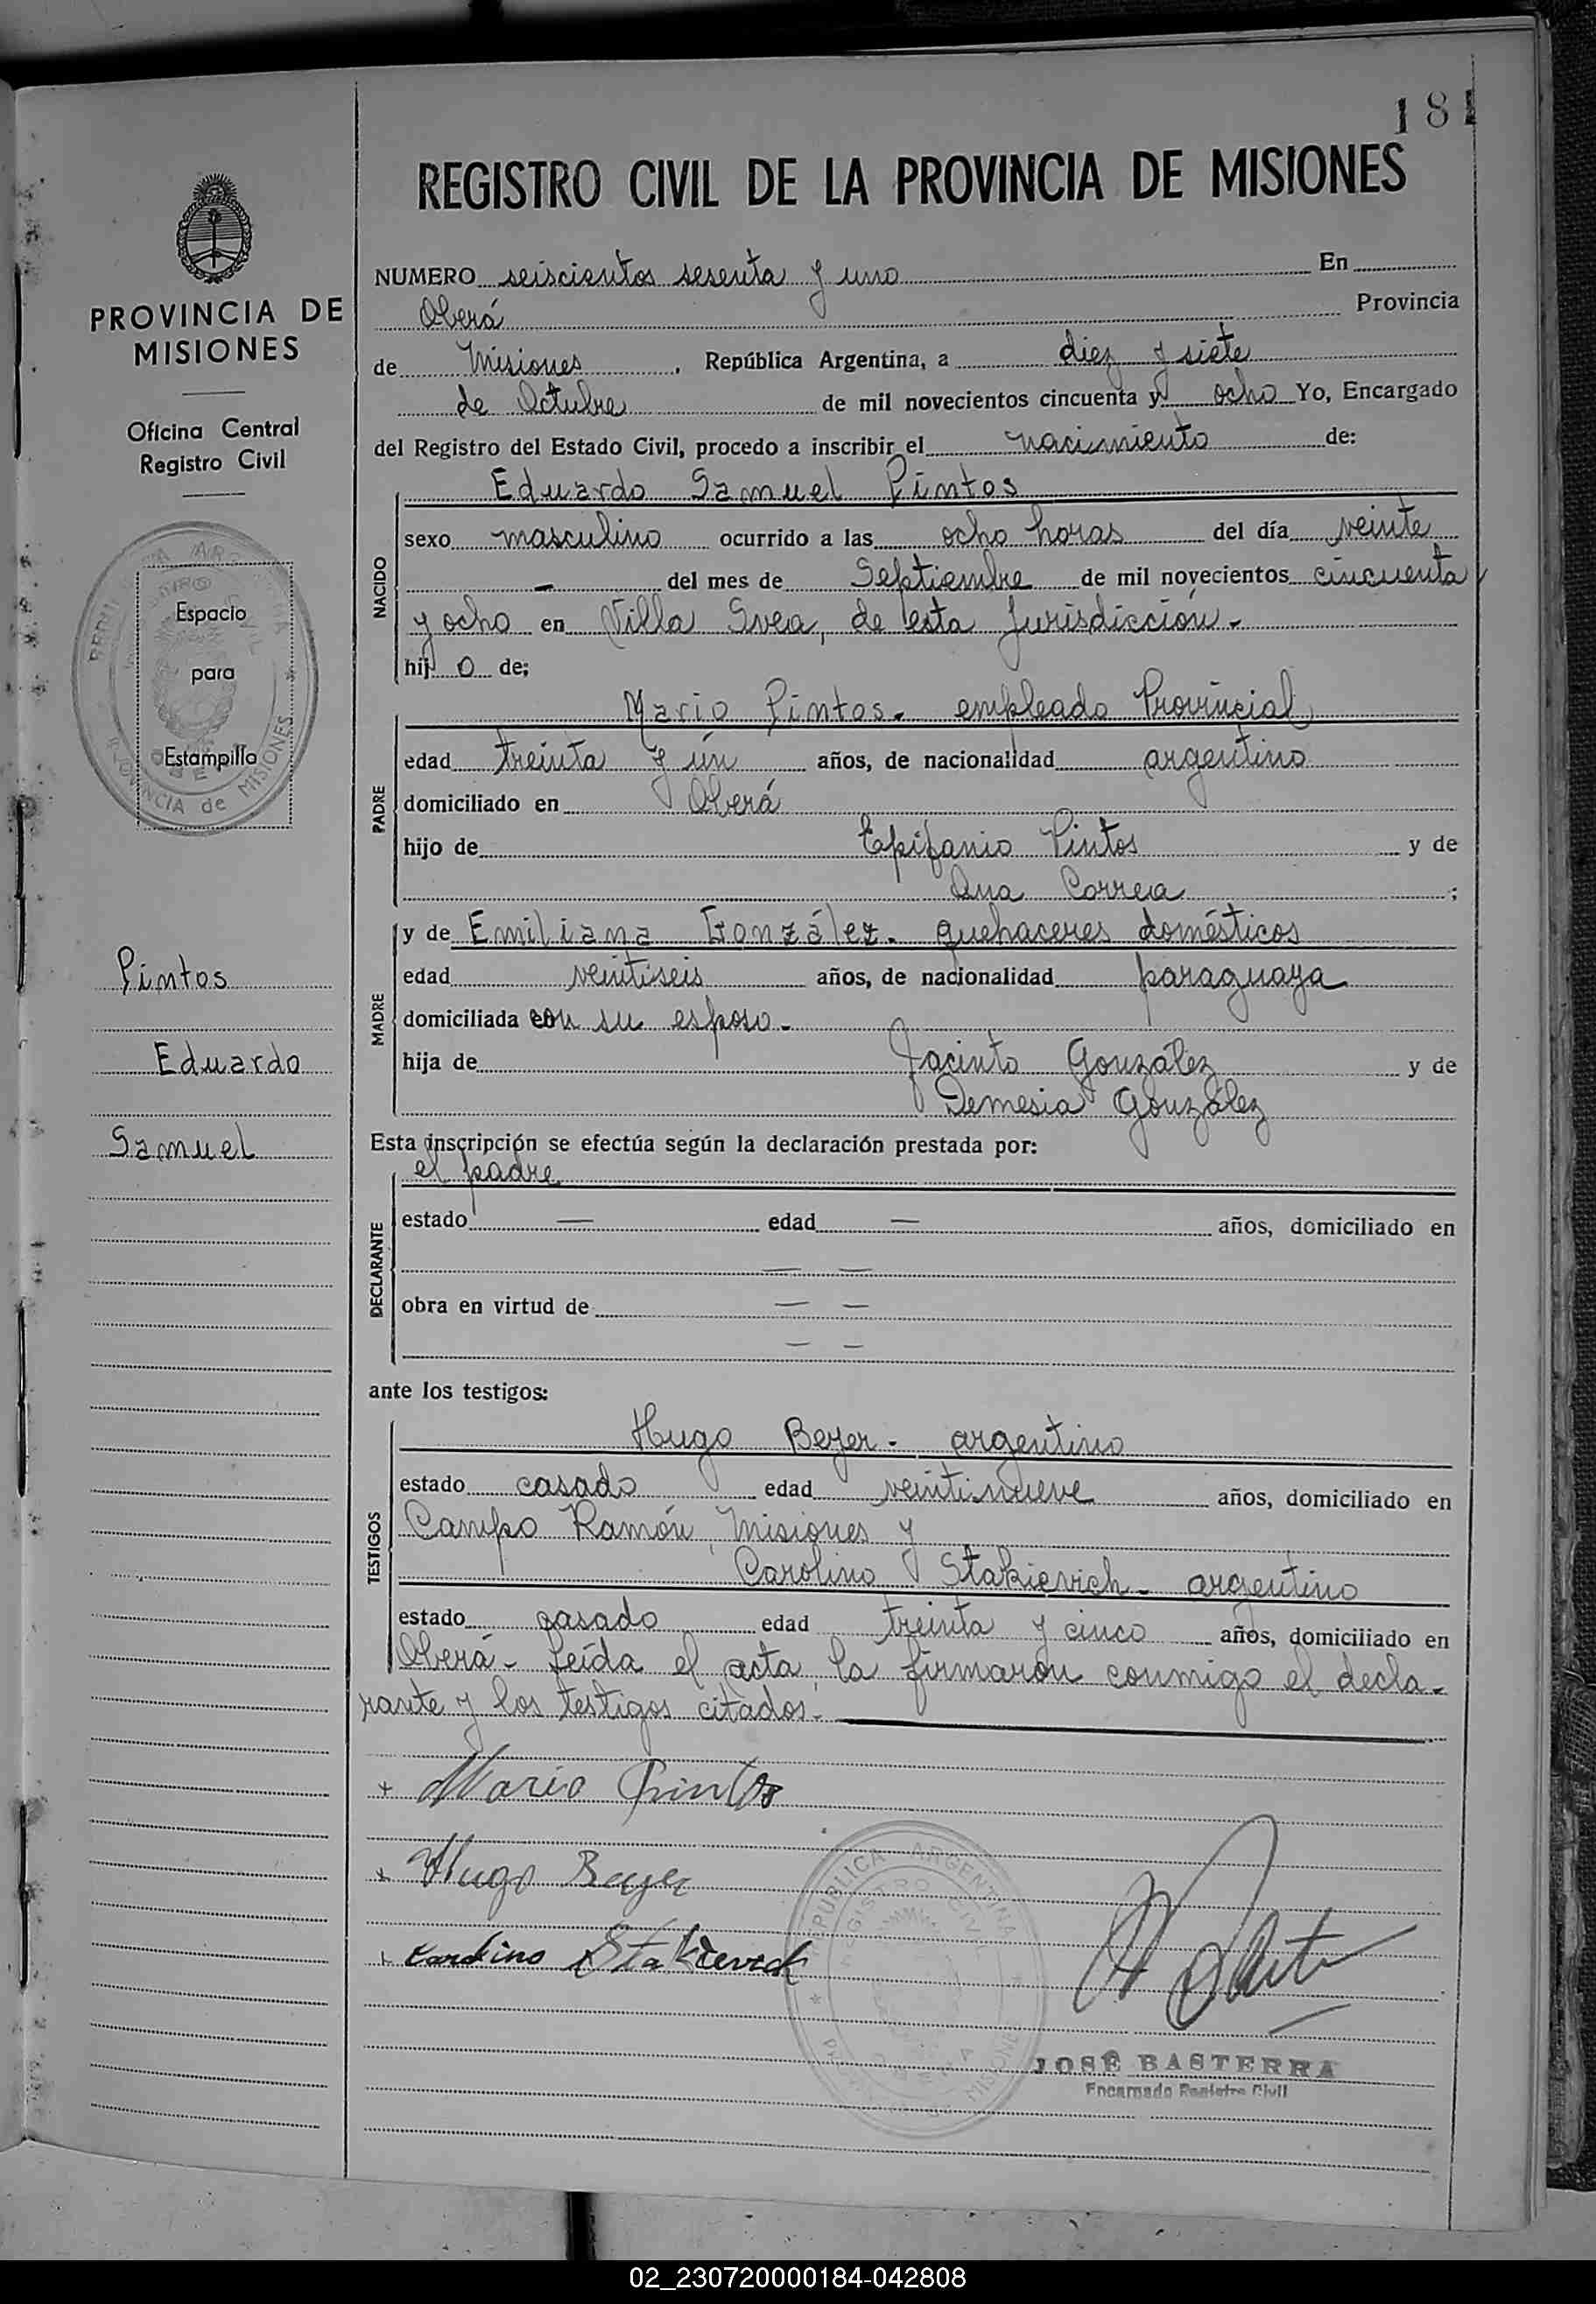 181
REGISTRO CIVIL DE LA PROVINCIA DE MISIONES
PROVINCIA DE
MISIONES
Oficina Central
Registro Civil
Espacio
para
Estampilla
Pintos
Eduardo
Samuel
NUMERO seiscientos sesenta y uno En
Oberá Provincia
de Misiones, República Argentina, a diez y siete
de Octubre de mil novecientos cincuenta y ocho Yo, Encargado
del Registro del Estado Civil, procedo a inscribir el nacimiento de:
NACIDO
Eduardo Samuel Pintos
sexo masculino ocurrido a las ocho horas del día veinte
— del mes de Septiembre de mil novecientos cincuenta
y ocho en Villa Svea, de esta Jurisdicción.-
hijo de;
PADRE
Mario Pintos. empleado Provincial
edad treinta y ún años, de nacionalidad argentino
domiciliado en Oberá
hijo de Epifanio Pintos y de
Ana Correa ;
MADRE
y de Emiliana González. quehaceres domésticos
edad veintiseis años, de nacionalidad paraguaya
domiciliada con su esposo.-
hija de Jacinto González y de
Demesia González
Esta inscripción se efectúa según la declaración prestada por:
DECLARANTE
el padre
estado — edad — años, domiciliado en
— —
obra en virtud de — —
— —
ante los testigos:
TESTIGOS
Hugo Beyer - argentino
estado casado edad veintinueve años, domiciliado en
Campo Ramón, Misiones y
Carolino Stakievich - argentino
estado casado edad treinta y cinco años, domiciliado en
Oberá - Leída el acta, la firmaron conmigo el decla-
rante y los testigos citados.-
+ Mario Pintos
+ Hugo Beyer
+ Carolino Stakievich
REPUBLICA ARGENTINA
REGISTRO CIVIL
PROVINCIA de MISIONES
JOSÉ BASTERRA
Encargado Registro Civil
02_230720000184-042808